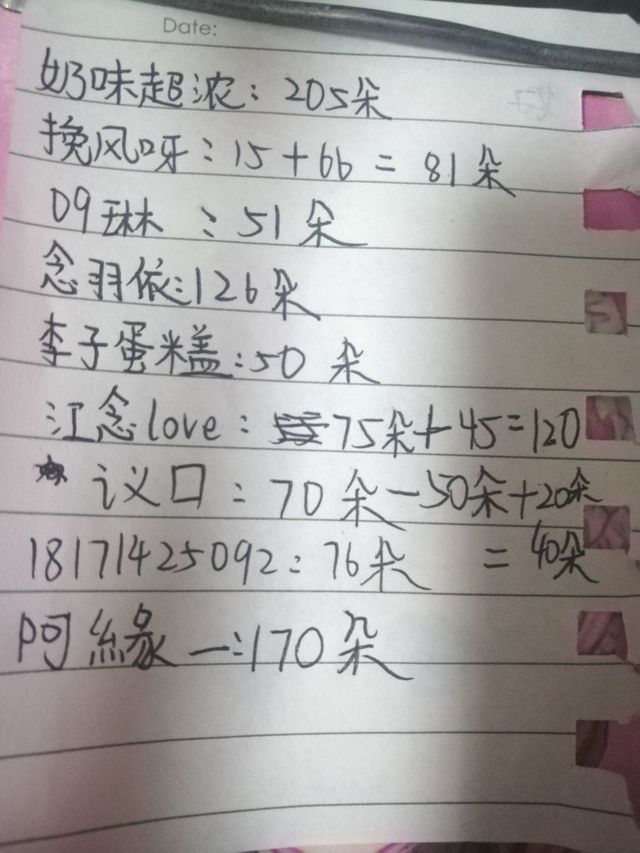 Date:
奶味超浓：205朵
挽风呀：15+66=81朵
D9琳：51朵
念羽依：126朵
李子蛋糕盖：50朵
江念love：75朵+45=120
议口：70朵-50朵+20朵
=40朵
18171425092：76朵
阿緣一：170朵